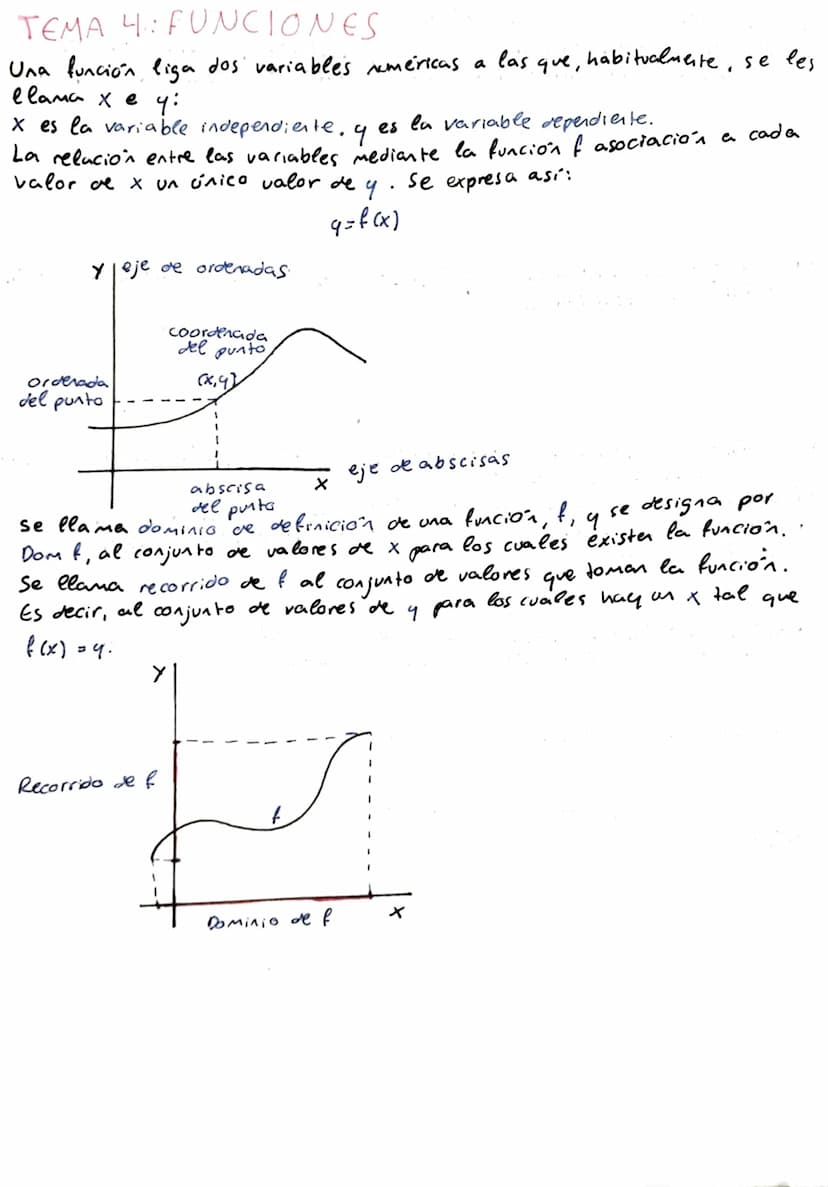 TEMA 4: FUNCIONES
Una función liga dos variables numéricas a las que, habitualmente, se les
llama x e y:
x es la variable independiente, y es la variable dependiente.
La relación entre las variables mediante la función f asociación a cada
valor de x un único valor de y. Se expresa así:
y=f(x)
Y eje de ordenadas
coordenada
del punto
(x,y)
ordenada
del punto
eje de abscisas
X
abscisa
del punto
Se llama dominio de definición de una función, f, y se designa por
Dom f, al conjunto de valores de x para los cuales existen la función.
Se llama recorrido de f al conjunto de valores que toman la función.
Es decir, al conjunto de valores de y para los cuales hay un x tal que
f(x) = y.
Y
Recorrido de f
f
Dominio de f
X